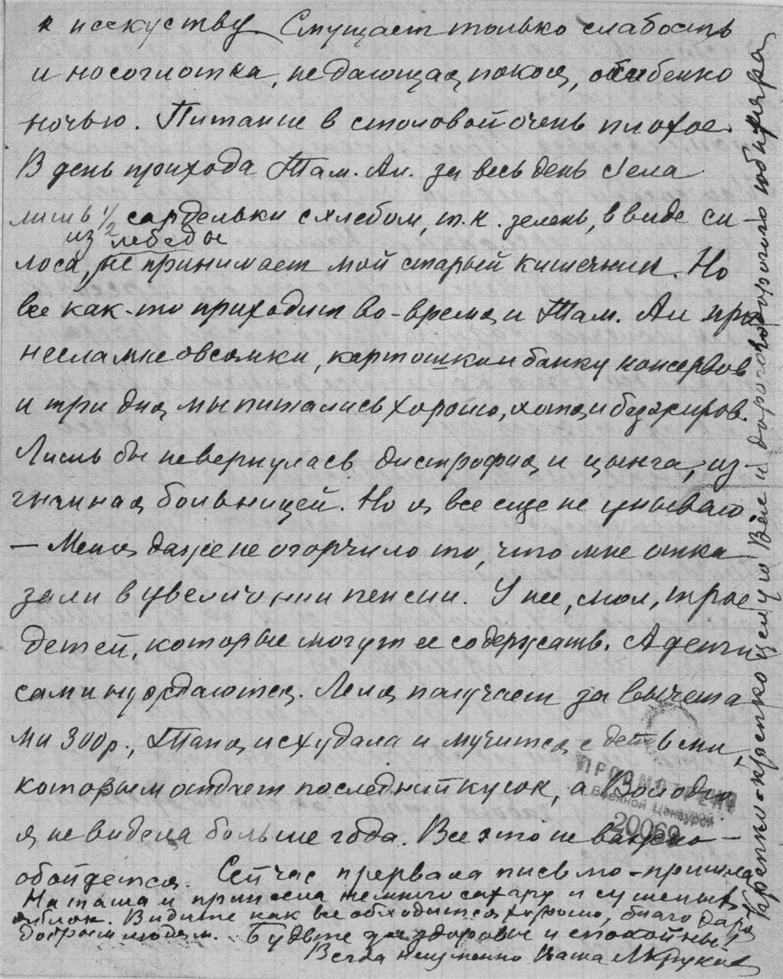 к исскуству. Смущает только слабость
и носоглотка, не дающая покоя, особенно
ночью. Питание в столовой очень плохое
В день прихода Там. Ал. за весь день съела
лишь 1/2 сардельки с хлебом, т.к. зелень, в виде си-
из лебеды
лоса, не принимает мой старый кишечник. Но
все как-то приходит во-время и Там. Ал при-
несла мне овсянки, картошки и банку консервов
и три дня мы питались хорошо, хотя и без жиров.
Лишь бы не вернулась дистрофия и цынга, из-
гнанная больницей. Но я все еще не унываю
— Меня даже не огорчило то, что мне отка
зали в увеличении пенсии. У нее, мол, трое
детей, которые могут ее содержать. А дети
сами нуждаются. Леля получает за вычета
ми 300р., Таня исхудала и мучится с детьми,
которым отдает последний кусок, а Володю
я не видела больше года. Все это не важно —
обойдется. Сейчас прервала письмо – пришла
Наташа и принесла немного сахару и сушеных
яблок. Видите как все обходится хорошо, благодаря
добрым людям. Будьте здоровы и спокойны!
Всегда неизменно Ваша
Крепко-крепко целую Вас и дорогого юбиляра
ПРОСМОТРЕНО
Военной Цензурой
20069